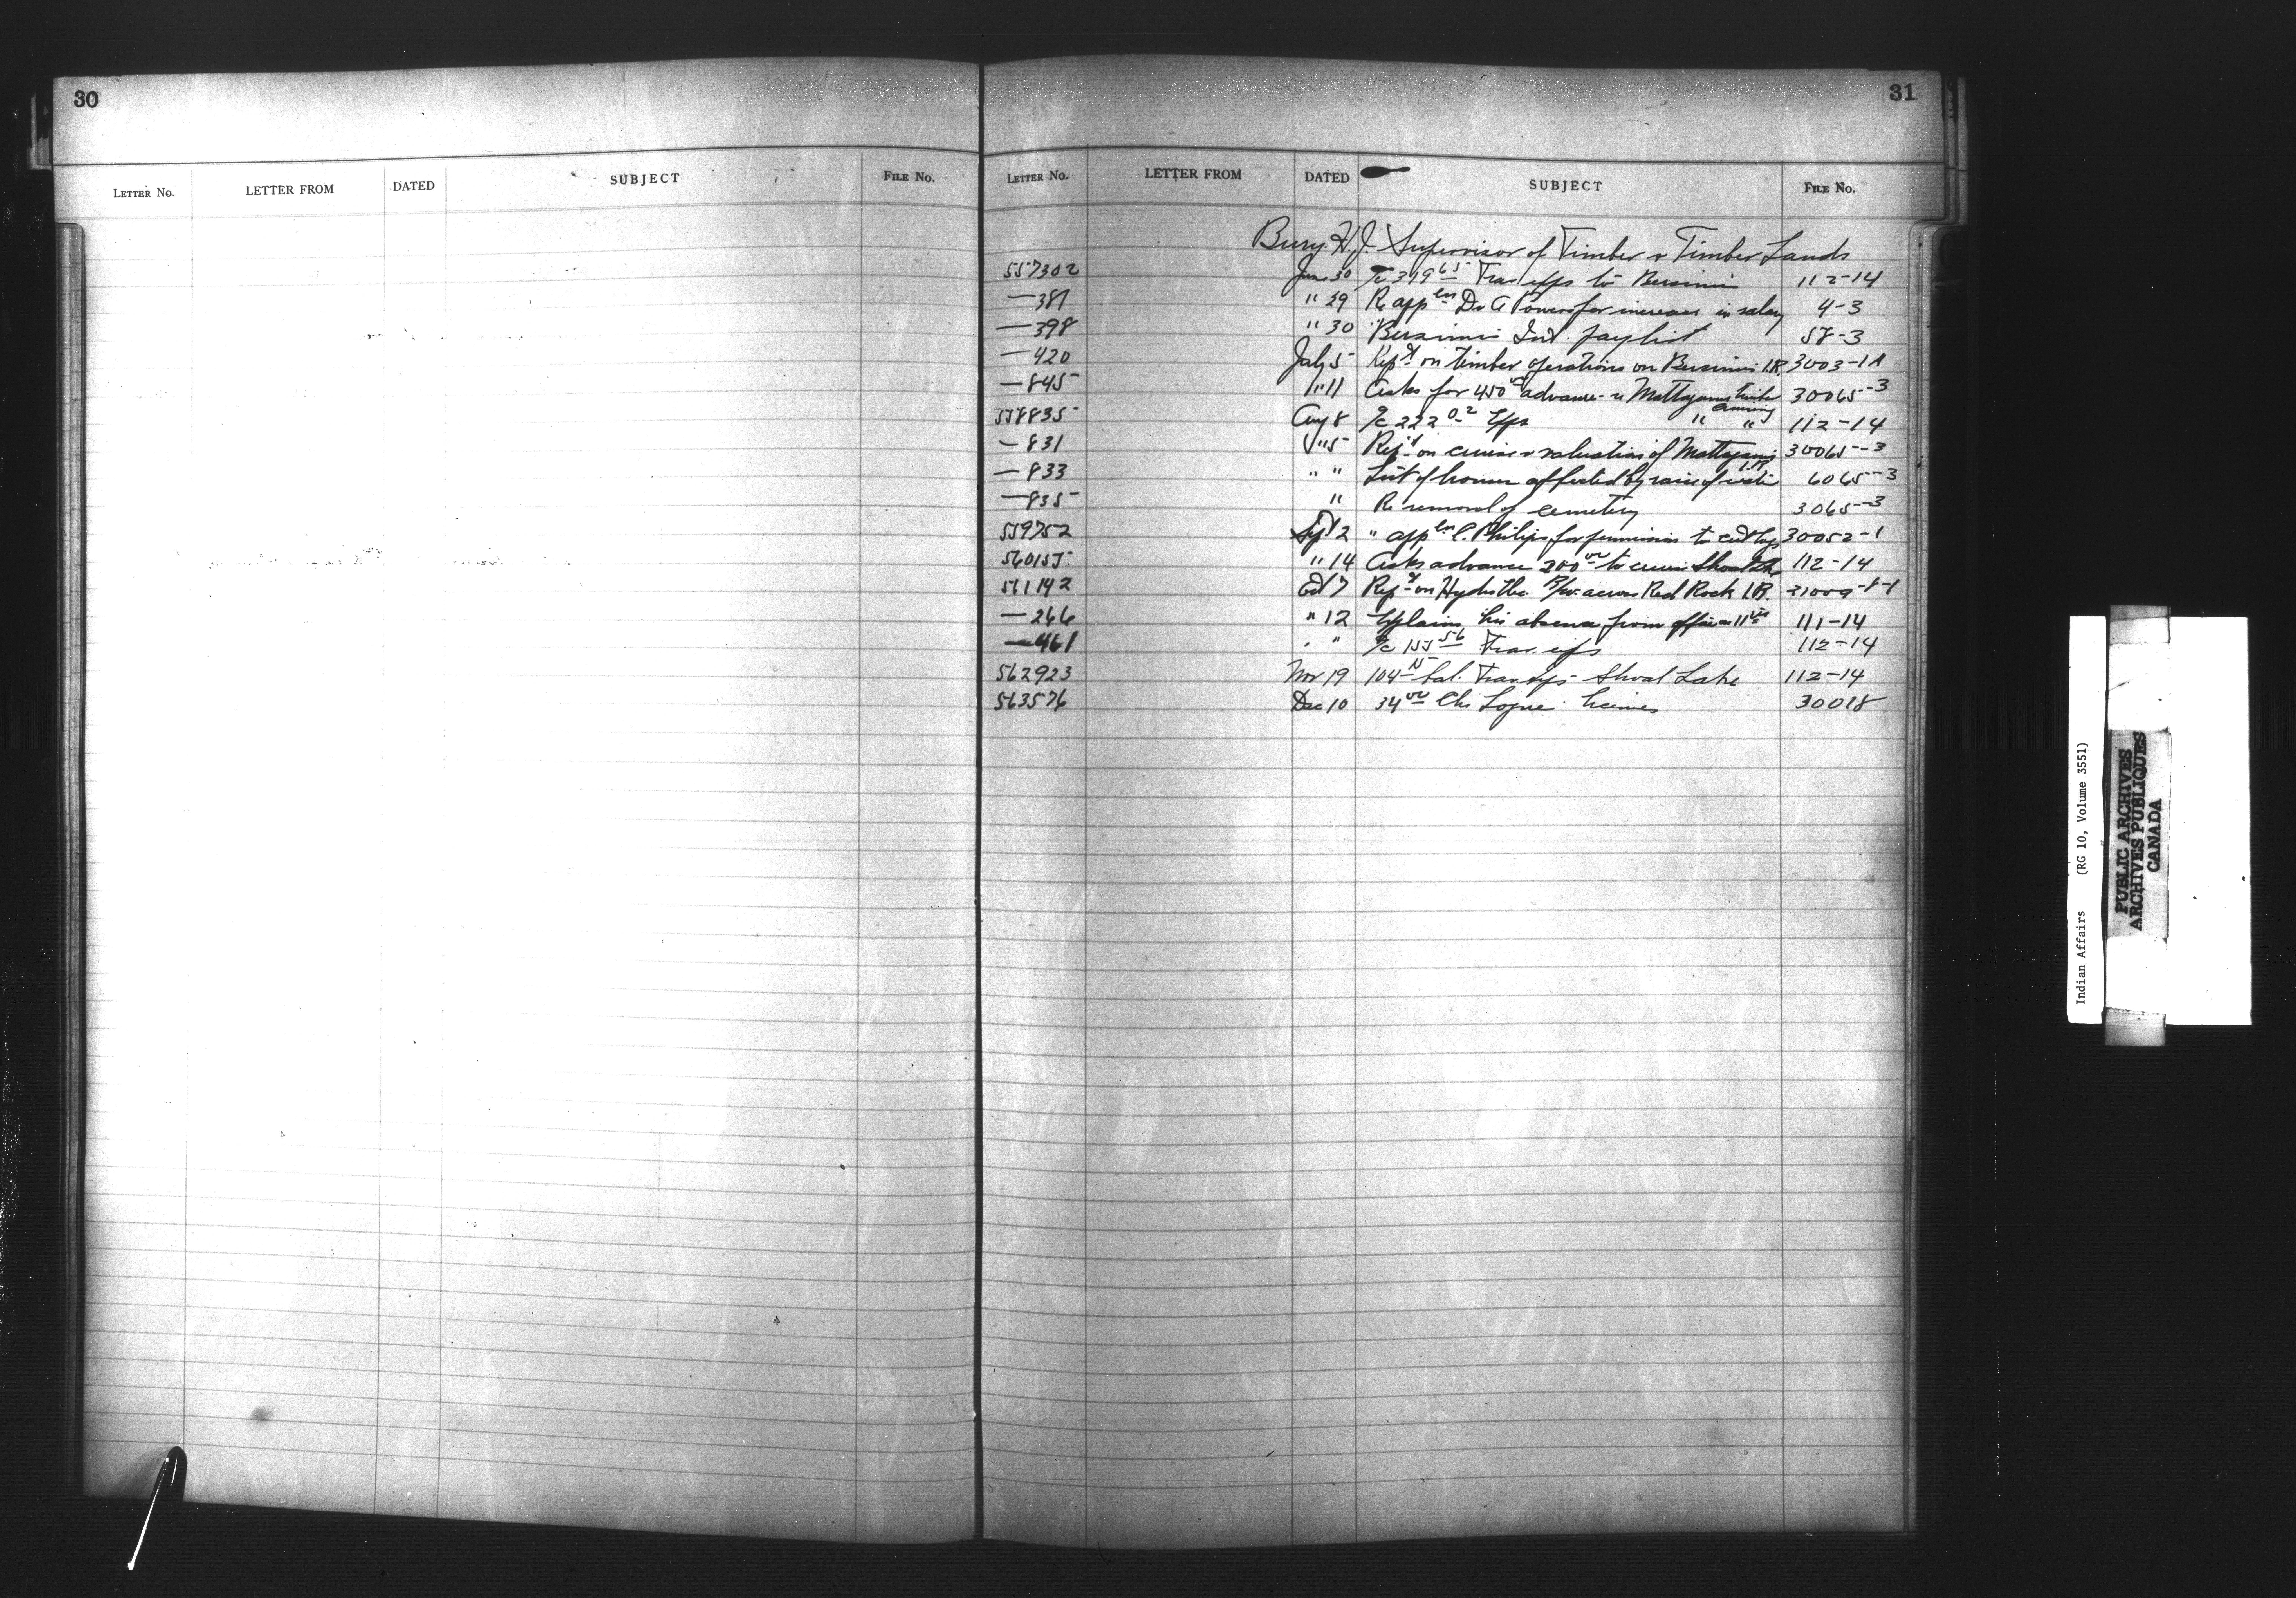 30
LETTER No. LETTER FROM DATED SUBJECT FILE No.
31
LETTER No. LETTER FROM DATED SUBJECT FILE No.
Bury. H.J. Supervisor of Timber & Timber Lands
557302 June 30 a/c 319 65 Trav exps to Bersimis 112-14
—381 " 29 Re appln Dr A Powers for increase in salary 4-3
—398 " 30 Bersimis Ind. pay list 58-3
—420 July 5 Rept on timber operations on Bersimis I.R. 3003-1A
—845 " 11 Asks for 450 00 advance re Mattagami timber cruising 30065-3
558835 Aug 8 a/c 222 02 Exps " " 112-14
—831 " 5 Rept on cruise & valuation of Mattagami I.R. 30065-3
—833 " " List of houses affected by raise of water 6065-3
—835 " Re removal of cemetery 3065-3
559752 Sept 2 " appln C. Philips for permission to cut logs 30052-1
560155 " 14 Asks advance 200 00 to cruise Shoal Lke 112-14
561142 Oct 7 Rept on Hydro Elec. R/W across Red Rock I.R. 31009-8-1
—266 " 12 Explains his absence from office on 11th 111-14
—461 " " a/c 155 56 Trav. exps 112-14
562923 Nov 19 104 15 bal. Trav exps Shoal Lake 112-14
563576 Dec 10 34 00 30018
Indian Affairs (RG 10, Volume 3551)
PUBLIC ARCHIVES
ARCHIVES PUBLIQUES
CANADA